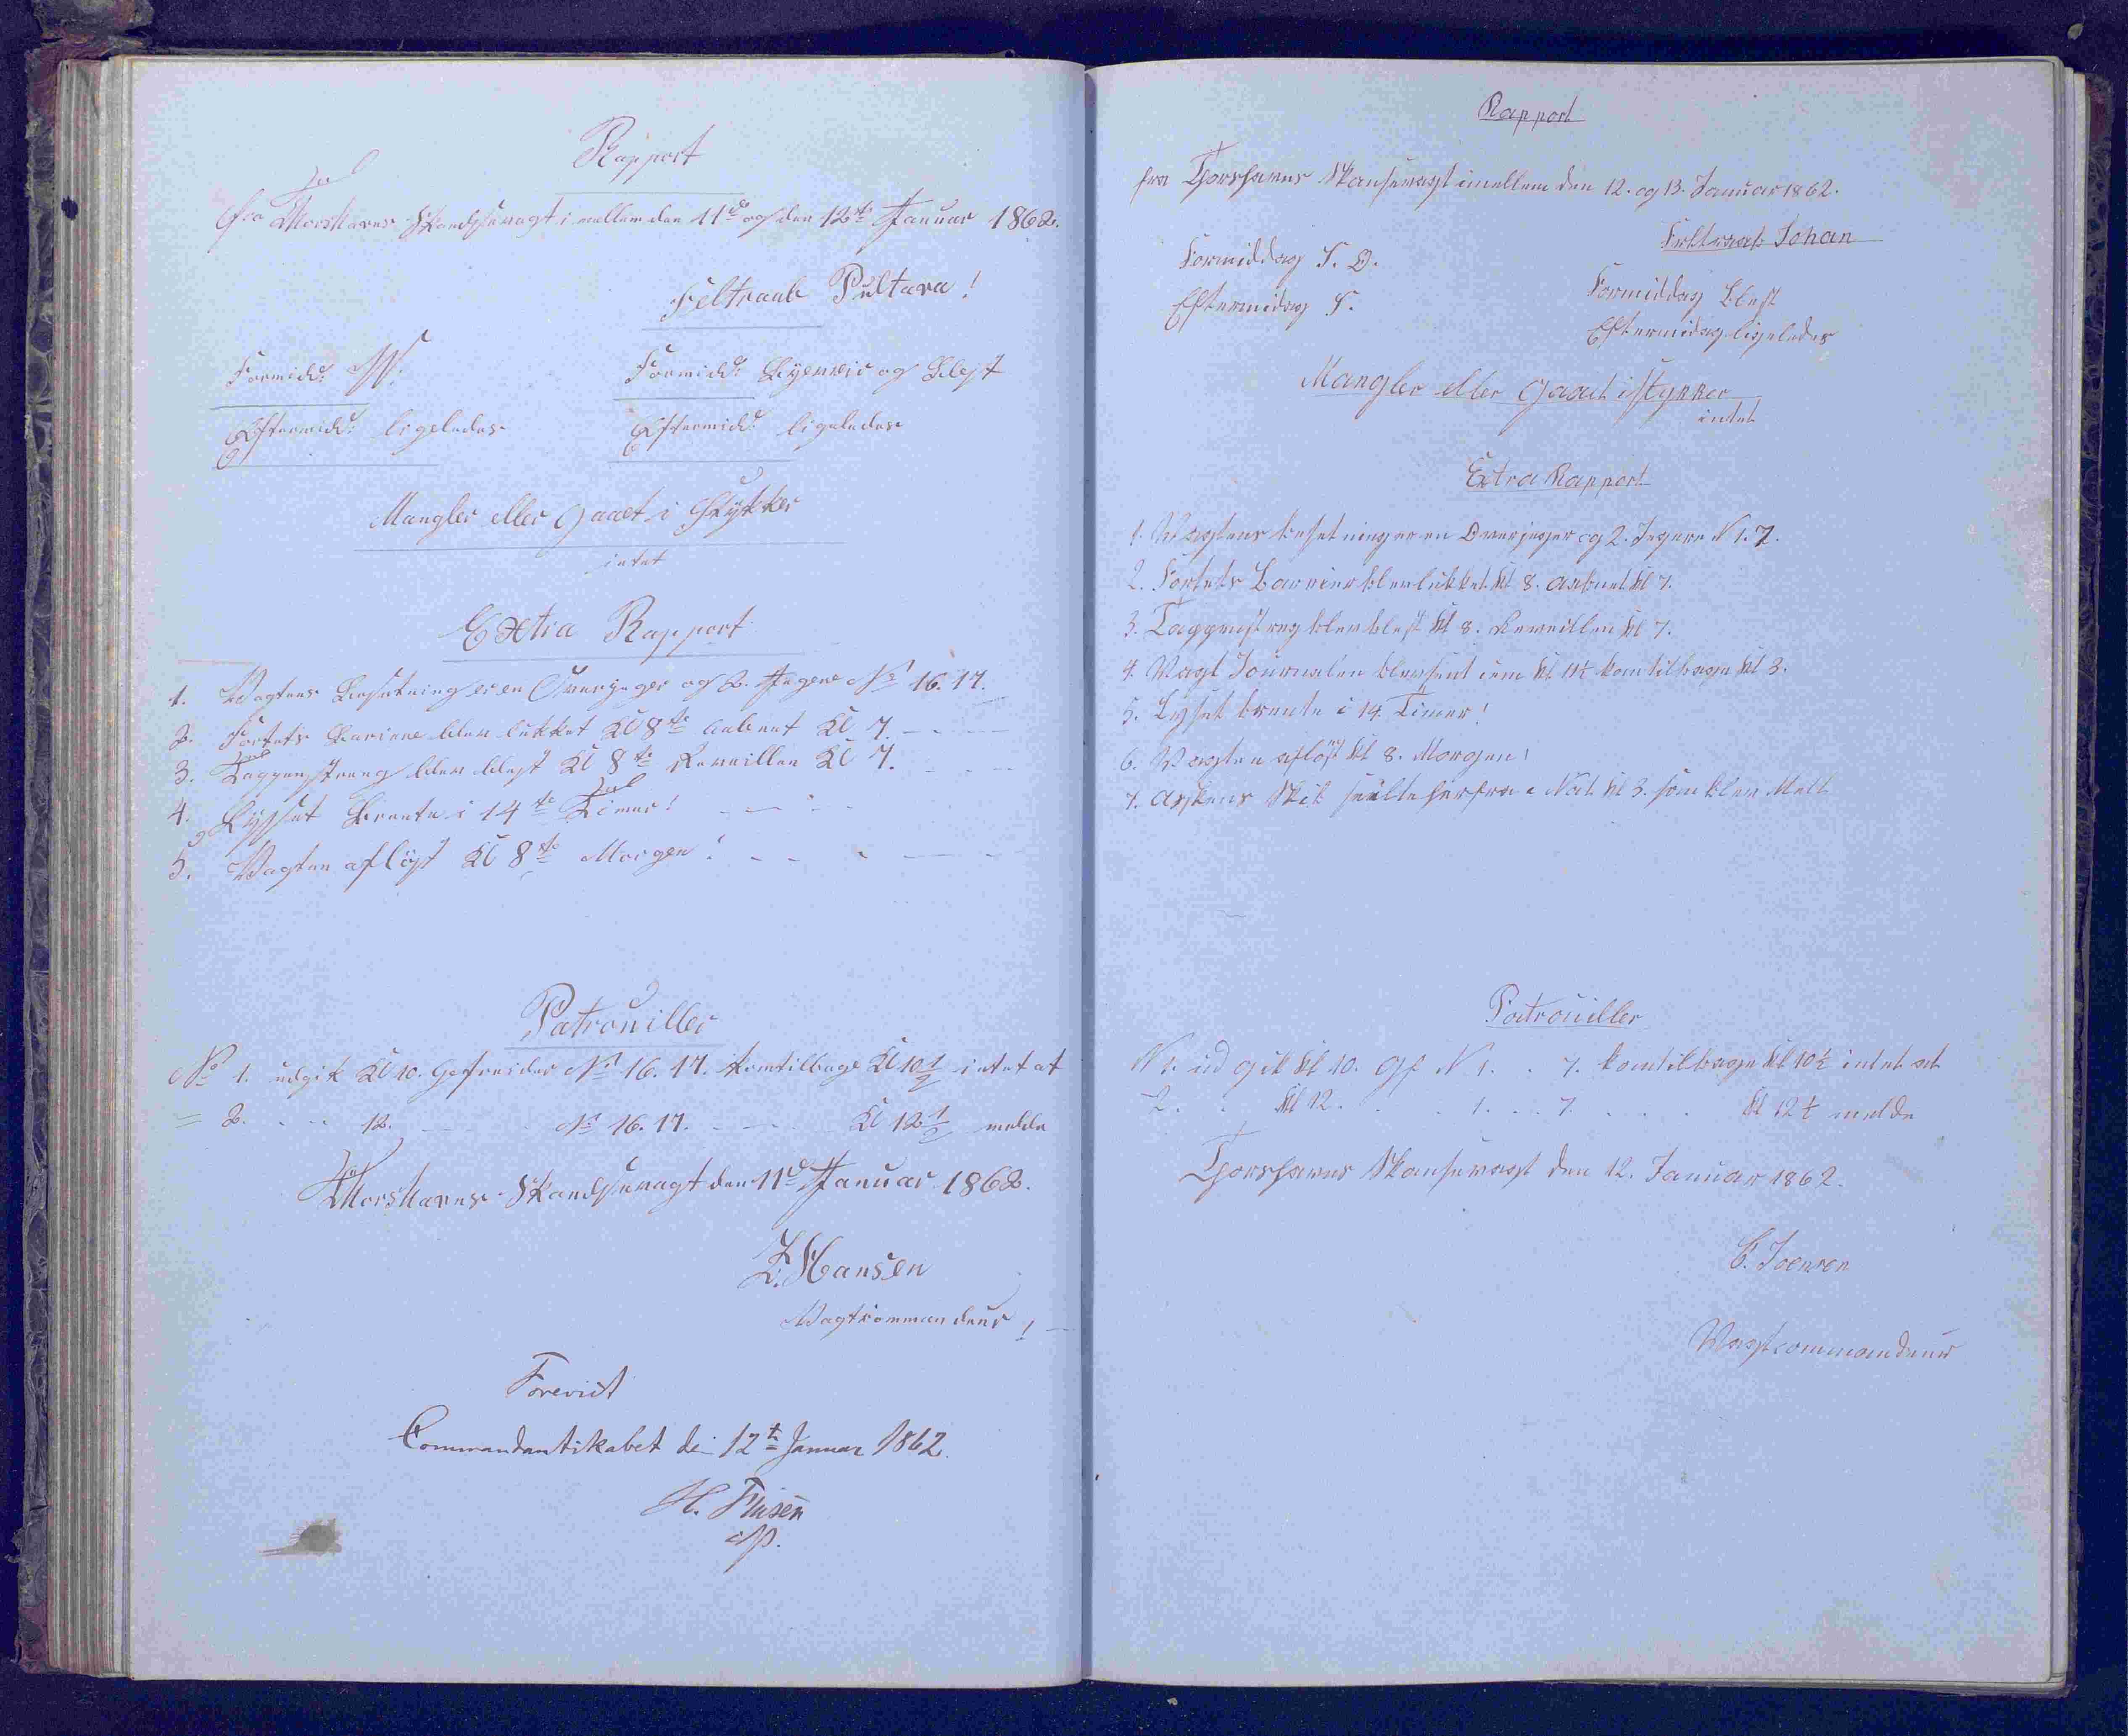 Rapport
fra Thorshavns Skandsevagt imellem den 11te og den 12te Januar 1862.
Feltraab Pultava!
Formidd:
Formidd: Byeveir og Blæst
Eftermidd: ligeledes
Eftermidd: ligeledes
Mangler eller gaaet i Stykker
intet
Extra Rapport
1. Vagtens Besætning er en Overjæger og 2. Jægere No 16. 17.
2. Fortets Bariere blev lukket Kl 8te aabnet Kl 7.
3. Tappenstreng blev blæst Kl 8te Reveillen Kl 7.
4. Lysset Brente i 14te Timer!
5. Vagten afløst Kl 8te Morgen!
Patrouiller
No 1. udgik Kl 10. Gefreider No 16. 17. kom tilbage Kl 10 1/2 intet at
= 2. 12. No 16. 17. Kl 12 1/2 melde
Thorshavns Skandsevagt den 11te Januar 1862.
Hansen
Vagtkommandeur!
Forevist
Commandantskabet de 12te Januar 1862.
H.
Rapport
fra Thorshavns Skansevagt imellem den 12. og 13. Januar 1862.
Feltraab Johan
Formiddag S. O.
Formiddag Blæst
Eftermidag S.
Eftermidag ligeledes
Mangler eller gaaet i stykker
intet
Extra Rapport
1. Vagtens besetning er en Overjeger og 2. Jegere N 1. 7.
2. Fortets Barrier blev lukket Kl 8. aabnet Kl 7.
3. Tappenstreg blev blest Kl 8. Reveillen Kl 7.
4. Vagt Journalen blev sent iem Kl 11½ kom tilbage Kl 3.
5. Lyset brente i 14. Timer!
6. Vagten afløst Kl 8. Morgen!
7. Skib herfra i Nat Kl 3. som blev Melt
Patrouiller
N 1. ud gik Kl 10. Gf N 1. . 7. kom tilbage Kl 10½ intet at
2. Kl 12. 1. 7. Kl 12½ melde
Thorshavns Skansevagt den 12. Januar 1862.
Joensen
Vagtcommandeur